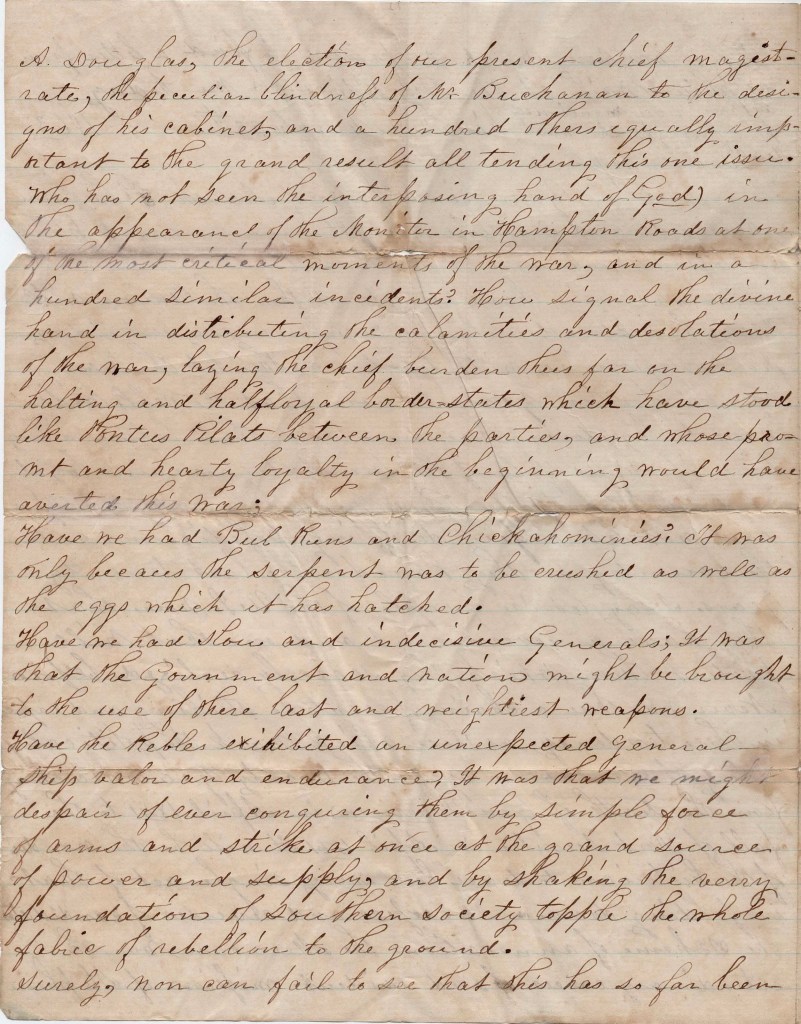 A. Douglas, the election of our present chief magist-
rate, the peculiar blindness of Mr Buchanan to the desi-
gns of his cabinet, and a hundred others equally imp-
ortant to the grand result all tending this one issu.
Who has not seen the interposing hand of God) in
the appearance of the Monitor in Hampton Roads at one
of the most critical moments of the war, and in a
hundred similar incidents? How signal the divine
hand in distributing the calamities and desolations
of the war, laying the chief burden thus far on the
halting and halfloyal border-states which have stood
like Pontus Pilats between the parties, and whose pro-
mt and hearty loyalty in the beginning would have
averted this war;
Have we had Bul Runs and Chickahominies? It was
only becaus the serpent was to be crushed as well as
the eggs which it has hatched.
Have we had slow and indecisive Generals; It was
that the Government and nation might be brought
to the use of there last and weightiest weapons.
Have the Rebles exihibited an unexpected General-
ship valor and endurance? It was that we might
despair of ever conquring them by simple force
of arms and strike at once at the grand source
of power and supply, and by shaking the verry
foundation of southern society topple the whole
fabric of rebellion to the ground.
Surely, non can fail to see that this has so far been